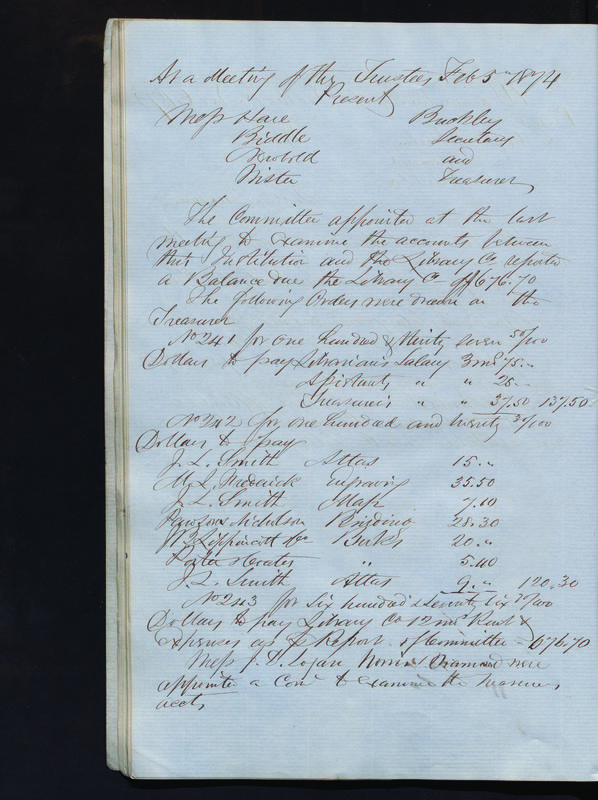 At a Meeting of the Trustees Feb 5th 1874
Present
Mess Hare Buckley
Biddle Secretary
Newbold and
Wister Treasurer
The Committee appointed at the last
meeting to examine the accounts between
this Institution and the Library Co reported
a Balance due the Library Co of $676.70
The following Orders were drawn on the
Treasurer
No 241 for One hundred & thirty seven 50/100
Dollars to pay Librarians Salary 3 mos 75 "
Assistants " " 25 "
Treasurers " " 37.50 137.50
No 242 for one hundred and twenty 30/100
Dollars to pay
J. L. Smith Atlas 15 "
M. L. Frederick Engraving 35.50
J. L. Smith Map 7.10
Pawson & Nicholson Binding 28.30
J B Lippincott & Co Books 20 "
Porter & Coates " 5.40
J. L. Smith Atlas 9 " 120.30
No 243 for Six hundred & Seventy six 70/100
Dollars to pay Library Co 12 mos Rent &
expenses as pr Report of Committee — 676.70
Mess J. D. Logan Norris & Diamond were
appointed a Come to examine the Treasurers
accts